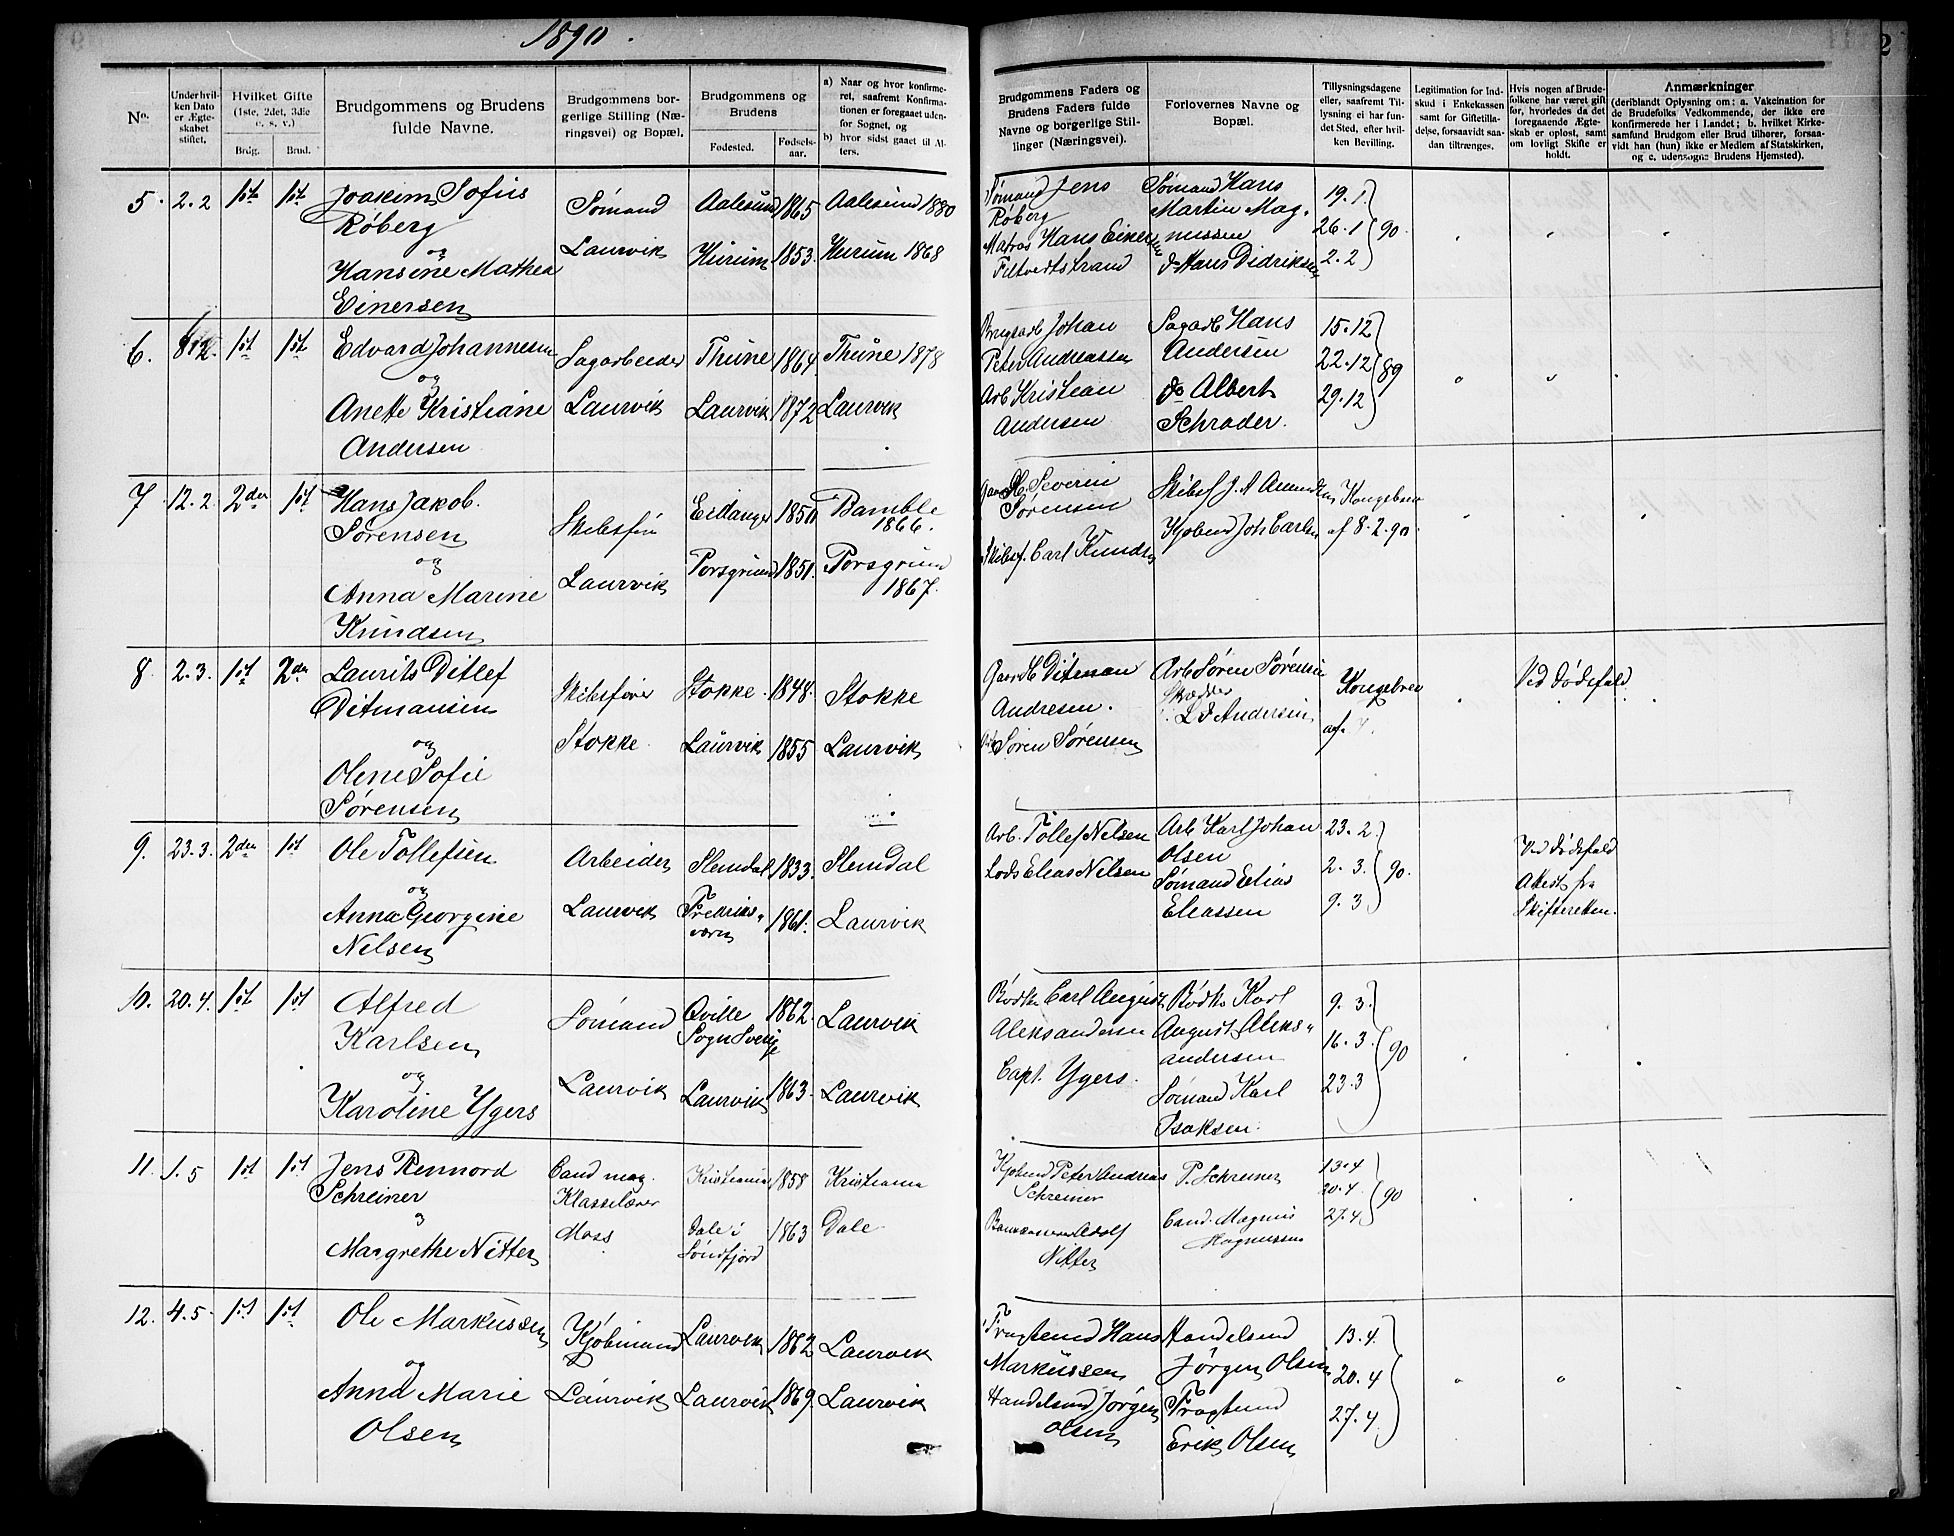 1890.
No.
Under hvilken Dato er Ægteskabet stiftet.
Hvilket Gifte (1ste, 2det, 3die o. s. v.)
Brdg.
Brud.
Brudgommens og Brudens fulde Navne.
Brudgommens borgerlige Stilling (Næringsvei) og Bopæl.
Brudgommens og Brudens
Fødested.
Fødselsaar.
a) Naar og hvor konfirmeret, saafremt Konfirmationen er foregaaet udenfor Sognet, og
b) hvor sidst gaaet til Alters.
Brudgommens Faders og Brudens Faders fulde Navne og borgerlige Stillinger (Næringsvei).
Forlovernes Navne og Bopæl.
Tillysningsdagene eller, saafremt Tillysning ei har fundet Sted, efter hvilken Bevilling.
Legitimation for Indskud i Enkekassen samt for Giftetilladelse, forsaavidt saadan tiltrænges.
Hvis nogen af Brudefolkene har været gift før, hvorledes da det foregaaende Ægteskab er opløst, samt om lovligt Skifte er holdt.
Anmærkninger
(deriblandt Oplysning om: a. Vakcination for de Brudefolks Vedkommende, der ikke ere konfirmerede her i Landet; b. hvilket Kirkesamfund Brudgom eller Brud tilhører, forsaavidt han (hun) ikke er Medlem af Statskirken, og c. udensogns Brudens Hjemsted).
2
5. 2.2 1ste 1ste Joakim Sofus Sømand Aalesund 1865 Aalesund 1880 Sømand Jens Sømand Hans 19.1
Røberg Røberg Martin Mag- 26.1 90.
og Laurvik Hurum 1853. Hurum 1868 Matros Hans Einersen nussen 2.2
Hansine Mathea Filtvedtstrand do Hans Didriksen
Einersen
6. 1ste 1ste Edvard Johannesen Sagarbeider Thune 1864 Thune 1878 Brugsarb Johan Sagarb Hans 15.12
og Peter Andreassen Andersen 22.12 89
Anette Kristiane Laurvik Laurvik 1872 Laurvik Arb Kristian do Albert 29.12
Andersen Andersen Schrader.
7 12.2 2den 1ste Hans Jakob Skibsfør Eidanger 1850 Bamble Severin Skibsf J. A Kongebrev
Sørensen 1866. Sørensen
og Laurvik Porsgrund 1851. Porsgrund Skibsf. Carl Knudsen Kjøbmd Joh Carlsen af 8.2.90
Anna Marine 1867.
Knudsen
8 2.3. 1ste 2den Laurits Ditlef Skibsfører Stokke. 1848. Stokke Ditman Arb Søren Sørensen Kongebrev Ved Dødsfald
Ditmansen Andresen. Skrædder
og Stokke. Laurvik 1855 Laurvik Søren Sørensen Andersen af
Olene Sofie
Sørensen
9. 23.3. 2den 1ste Ole Tollefsen Arbeider Slemdal 1833. Slemdal Arb. Tollef Nelsen Arb Karl Johan 23.2. Ved Dødsfald
og Lods Elias Nilsen Olsen 2.3. 90. Attest fra
Anna Georgine Laurvik Fredriks- 1861. Laurvik Sømand Elias 9.3 Skifteretten.
Nelsen værn Eleassen
10. 20.4. 1ste 1ste Alfred Sømand Qville 1862. Laurvik Bødk Carl August Bødk Karl 9.3.
Karlsen Sogn Sverige Aleksandersen August Aleks- 16.3. 90
og andersen
Karoline Ygers Laurvik Laurvik 1863. Laurvik Capt. Ygers. Sømand Karl 23.3
Isaksen.
11. 1.5 1ste 1ste Jens Rennord Cand mag. Kristiania 1858 Kristiania Kjøbmd Peter Andreas P. Schreiner 13.4
Schreiner Klasselærer Schreiner 20.4. 90
og Moss Dale i 1863 Dale Adolf Cand. Magnus 27.4
Margrethe Nitter Søndfjord Nitter Magnussen
12. 4.5. 1ste 1ste Ole Markussen Kjøbmand Laurvik 1862 Laurvik Fragtemd Hans Handelsmd 13.4.
og Markussen Jørgen Olsen 20.4
Anna Marie Laurvik Laurvik 1869. Laurvik Handelsmd Jørgen Fragtmd 27.4
Olsen Olsen Erik Olsen